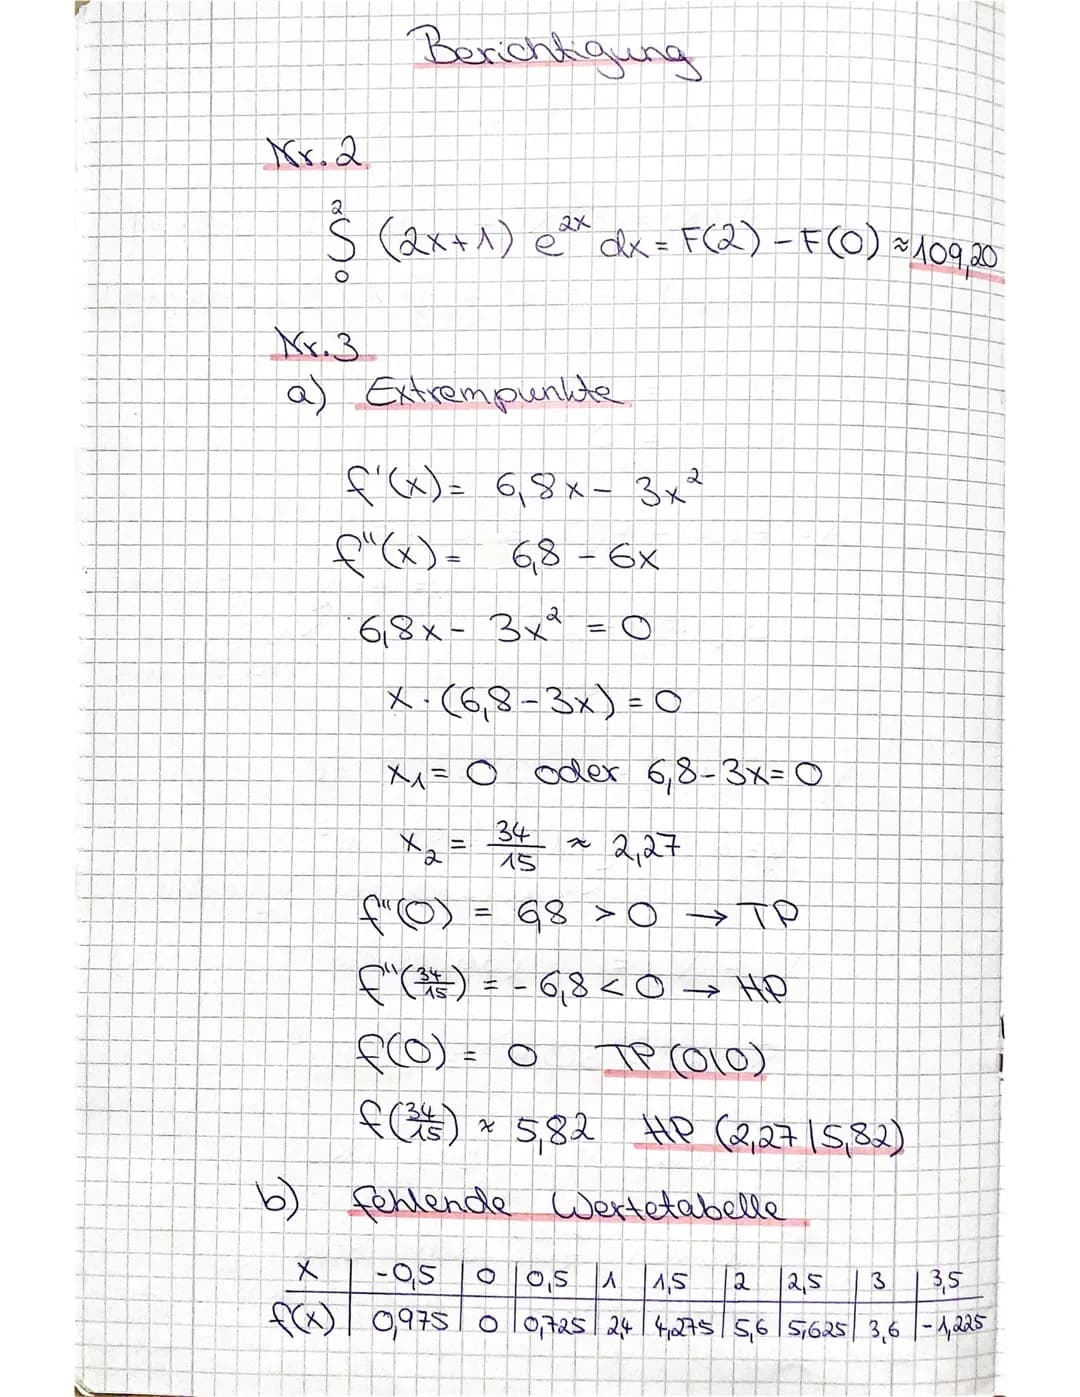 Berichtigung
Nr. 2
2
∫ (2x+1) e^2x dx = F(2) - F(0) ≈ 109,20
0
Nr. 3
a) Extrempunkte
f'(x) = 6,8x - 3x²
f''(x) = 6,8 - 6x
6,8x - 3x² = 0
x · (6,8 - 3x) = 0
x₁ = 0 oder 6,8 - 3x = 0
x₂ = 34/15 ≈ 2,27
f''(0) = 6,8 > 0 → TP
f''(34/15) = - 6,8 < 0 → HP
f(0) = 0 TP (0|0)
f(34/15) ≈ 5,82 HP (2,27|5,82)
b) fehlende Wertetabelle
x | -0,5 | 0 | 0,5 | 1 | 1,5 | 2 | 2,5 | 3 | 3,5
f(x) | 0,975 | 0 | 0,725 | 2,4 | 4,275 | 5,6 | 5,625 | 3,6 | -1,225